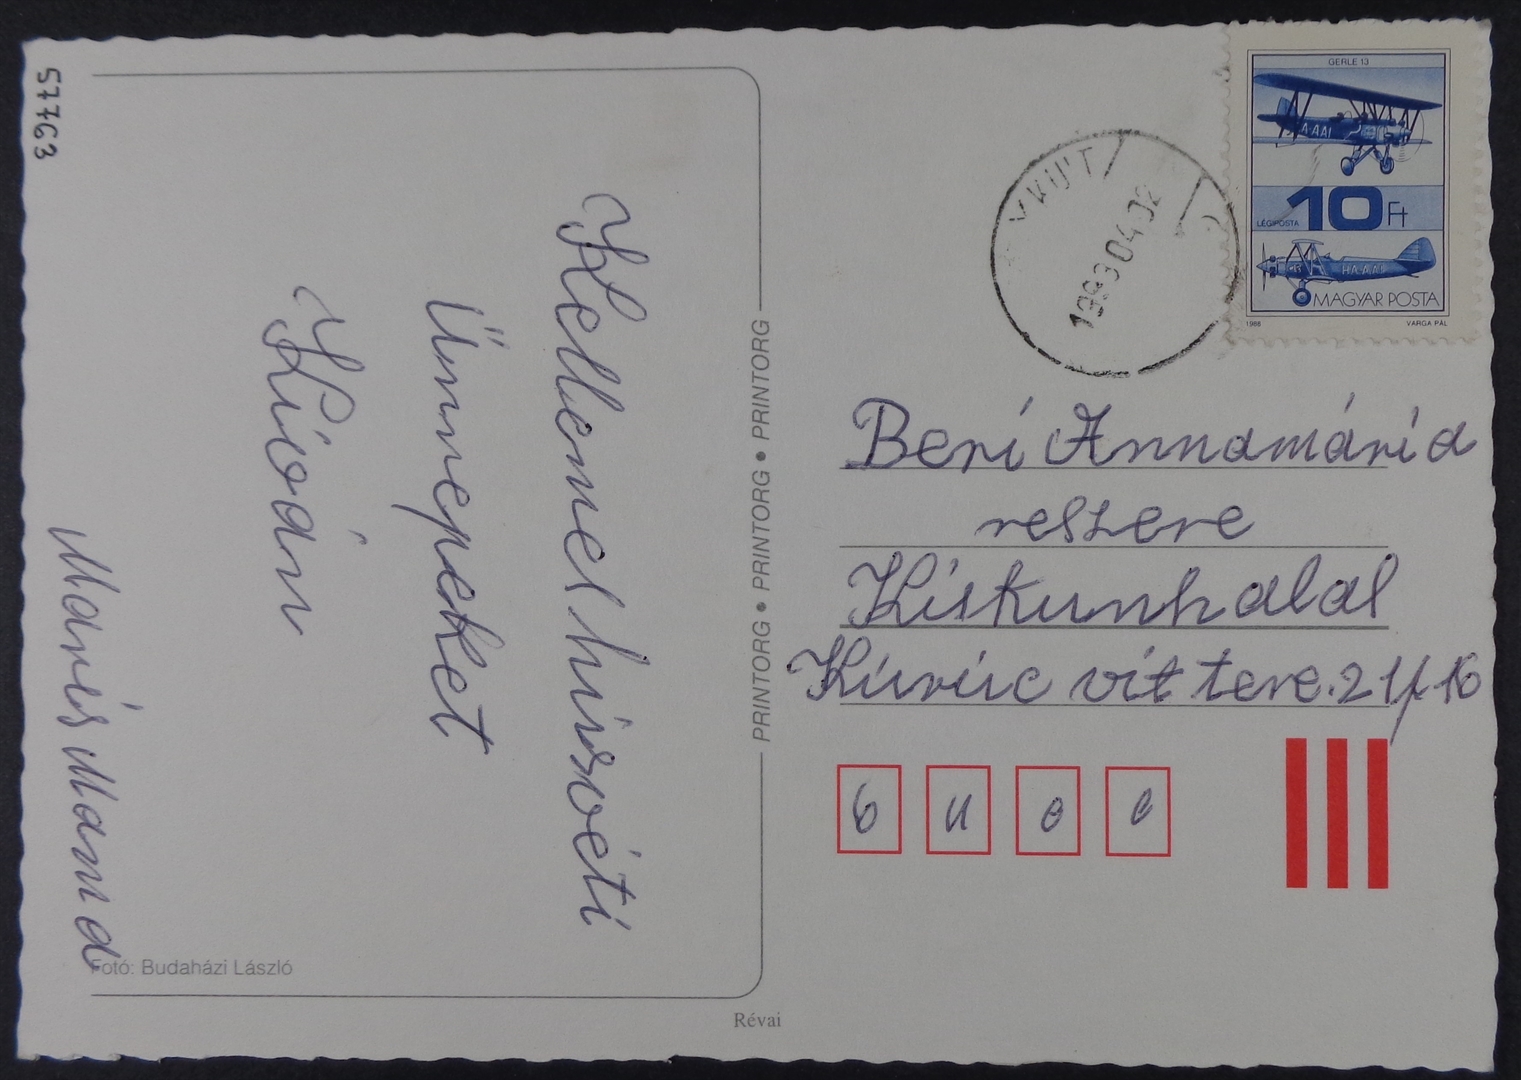 57763
Kellemes húsvéti
Ünnepeket
Kíván
Maris Mama
Fotó: Budaházi László
PRINTORG • PRINTORG • PRINTORG
Révai
GERLE 13
HA-AAI
LÉGIPOSTA
10 Ft
HA-AAI
MAGYAR POSTA
1988 VARGA PÁL
1993 04. 02
Beri Annamária
reszere
Kiskunhalas
Kuruc vit tere. 21/
6400